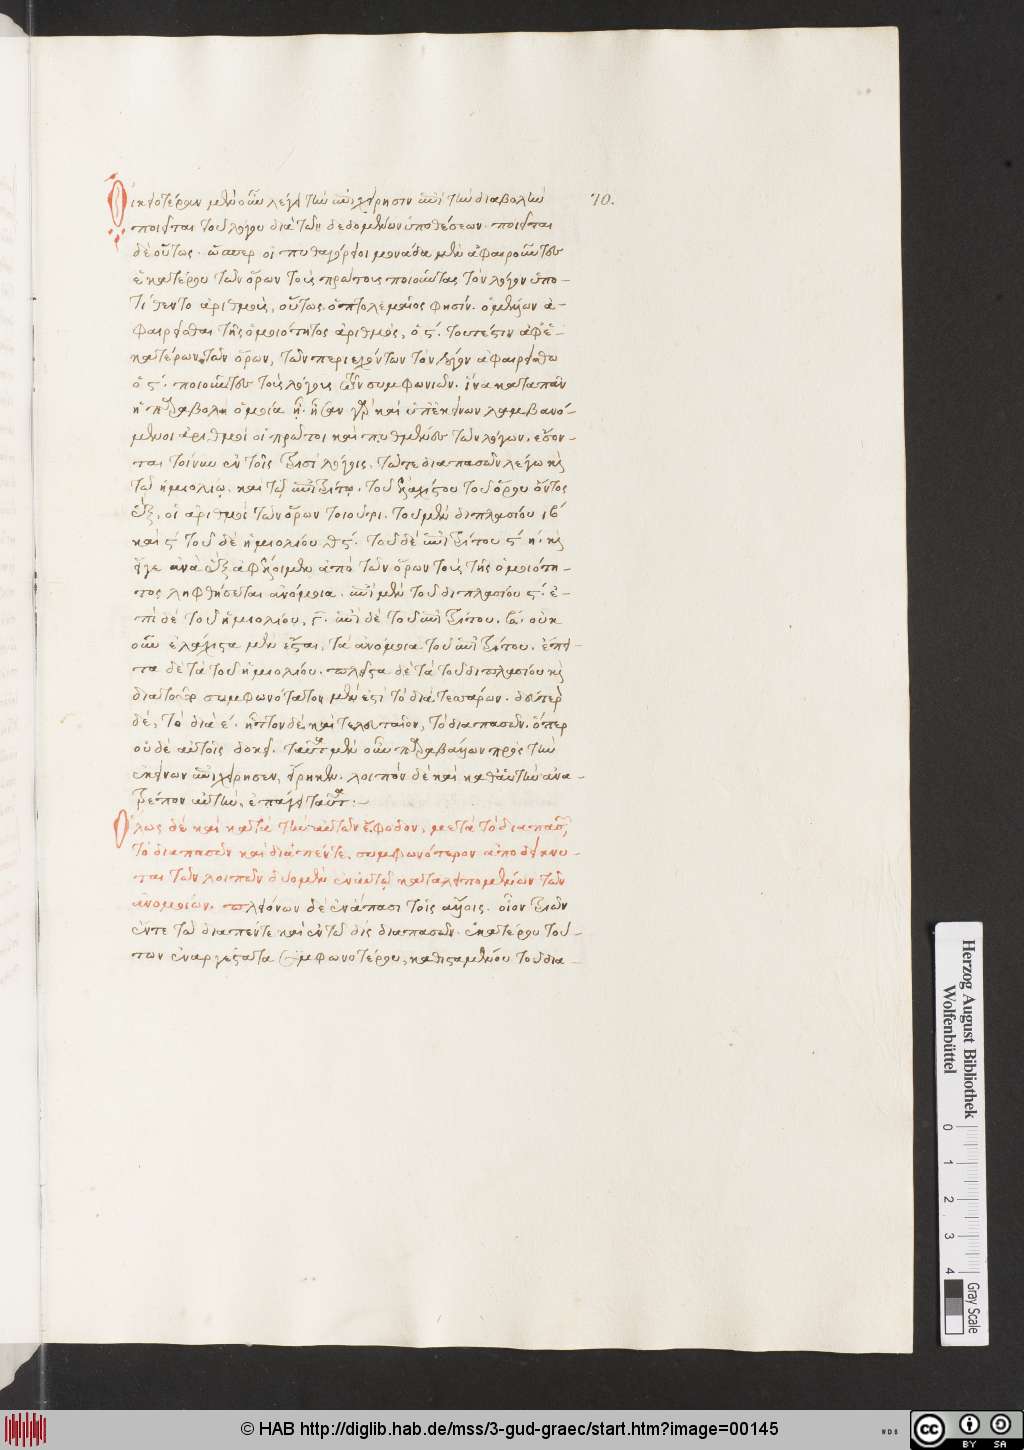 Οἰκειοτέραν μὲν οὖν λέγει τὴν ἐπιχείρησιν ἐπεὶ τὴν διαβολὴν 70.
ποιεῖται τοῦ λόγου διὰ τῶν δεδομένων ὑποθέσεων. ποιεῖται
δὲ οὕτως. ὥσπερ οἱ πυθαγόρειοι μονάδα μὲν ἀφαιροῦντες
ἑκατέρου τῶν ὅρων τοὺς πρώτους ποιοῦντας τὸν λόγον ὑπο-
τίθεντο ἀριθμοὺς, οὕτως ὁ πτολεμαῖος φησίν. ὁ μέλλων ἀ-
φαιρεῖσθαι τῆς ὁμοιότητος ἀριθμὸς, ὁ ϛ΄. τουτέστιν ἀφ' ἑ-
κατέρων τῶν ὅρων, τῶν περιεχόντων τὸν λόγον ἀφαιρείσθω
ὁ ϛ΄. ποιοῦντες τοὺς λόγους τῶν συμφωνιῶν. ἵνα κατὰ πᾶν
ἡ παραβολὴ ὁμοία ᾖ. ἦσαν γὰρ καὶ ὑπ' ἐκείνων λαμβανό-
μενοι ἀριθμοὶ οἱ πρῶτοι καὶ πυθμένες τῶν λόγων. ἔσον-
ται τοίνυν ἐν τοῖς τρισὶ λόγοις. τῶ τε διαπασῶν λέγω καὶ
τῶ ἡμιολίω. καὶ τῶ ἐπιτρίτω. τοῦ ἐλαχίστου τοῦ ὅρου ὄντος
ἓξ, οἱ ἀριθμοὶ τῶν ὅρων τοιοῦτοι. τοῦ μὲν διπλασίου ιβ΄
καὶ ϛ΄ τοῦ δὲ ἡμιολίου θ ϛ΄. τοῦ δὲ ἐπιτρίτου ϛ΄ η΄. καὶ
εἴγε ἀνὰ ἓξ ἀφέλοιμεν ἀπὸ τῶν ὅρων τοὺς τῆς ὁμοιότη-
τος ληφθήσεται ἀνόμοια. ἐπὶ μὲν τοῦ διπλασίου ϛ΄. ἐ-
πὶ δὲ τοῦ ἡμιολίου, γ. ἐπὶ δὲ τοῦ ἐπιτρίτου. β. οὐκ
οὖν ἐλάχιστα μὲν ἔσται, τὰ ἀνόμοια τοῦ ἐπιτρίτου. ἔπει-
τα δὲ τὰ τοῦ ἡμιολίου. πλεῖστα δὲ τὰ τοῦ διπλασίου καὶ
διὰ τοῦτο συμφωνότατον μὲν ἐστὶ τὸ διὰ τεσσάρων. δεύτερον
δὲ, τὸ διὰ ε΄. ἧττον δὲ καὶ τελευταῖον, τὸ διαπασῶν. ὅπερ
οὐδὲ αὐτοῖς δοκεῖ. ταῦτα μὲν οὖν παραβάλλων πρὸς τὴν
ἐκείνων ἐπιχείρησιν, εἴρηκεν. λοιπὸν δὲ καὶ καθ' αὑτὴν ἀνα-
τρέπων αὐτὴν, ἐπάγει ταῦτα:-
Ὅλως δὲ καὶ κατὰ τὴν αὐτῶν ἔφοδον, μετὰ τὸ διαπασῶν,
τὸ διαπασῶν καὶ διὰ πέντε. συμφωνότερον ἀποδείκνυ-
ται τῶν λοιπῶν δύο μὲν ἐν αὐτῶ καταλειπομένων τῶν
ἀνομοίων. πλειόνων δὲ ἐν ἅπασι τοῖς ἄλλοις. οἷον τριῶν
ἔν τε τῶ διὰ πέντε καὶ ἐν τῶ δὶς διαπασῶν. ἑκατέρου τού-
των ἐναργέστατα συμφωνοτέρου, καθισταμένου τοῦ δια-
Herzog August Bibliothek
Wolfenbüttel
0 1 2 3 4
Gray Scale
© HAB http://diglib.hab.de/mss/3-gud-graec/start.htm?image=00145
cc BY SA